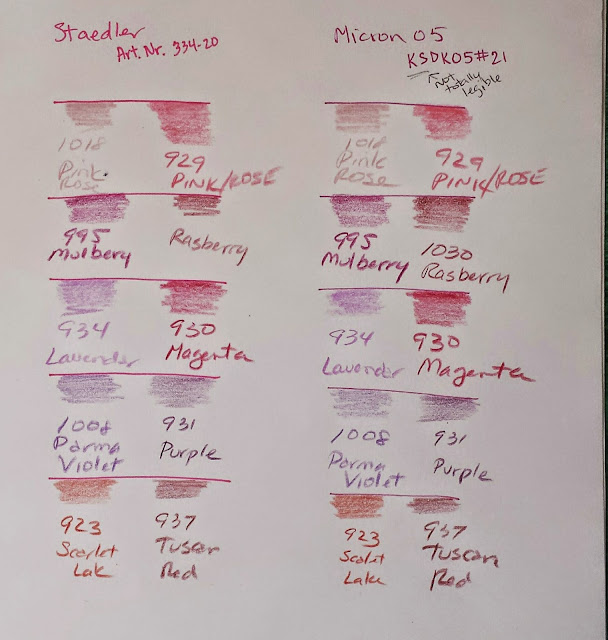 Staedler
Art. Nr. 334-20
1018
Pink
Rose
929
PINK/ROSE
995
Mulbery
Rasberry
934
Lavender
930
Magenta
1008
Parma
Violet
931
Purple
923
Scarlet
Lak
937
Tuscan
Red
Micron 05
KSDK05#21
not
totally
legible
1018
Pink
Rose
929
PINK/ROSE
995
Mulberry
1030
Rasberry
934
Lavender
930
Magenta
1008
Parma
Violet
931
Purple
923
Scalet
Lake
937
Tuscan
Red